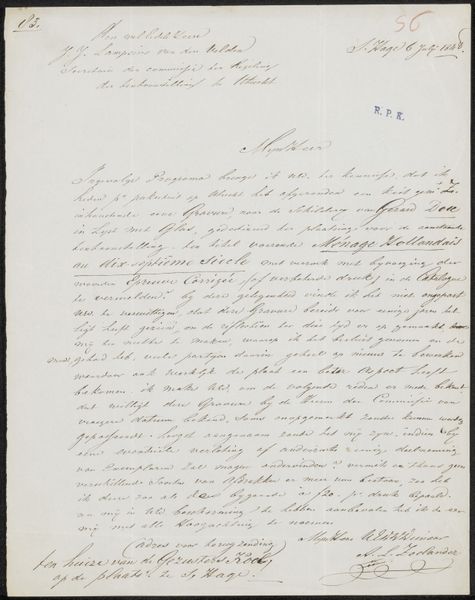 56
S Hage 6 July
J. J. Lampsins van den Velden
Secretaris der commissie ter Regeling
der tentoonstelling te Utrecht
R. P. K.
Mijn Heer
Ingevolge Programa breng ik UEd. ter kennisse, dat ik
heden op Utrecht heb afgezonden een kist
inhoudende eene Gravure, naar de Schilderij van Gerard Dou
in Lijst met Glas, ter plaatsing voor de aanstaande
tentoonstelling. den titel voerende Ménage Hollandais
au dix-septième siècle met verzoek met bijvoeging der
woorden Epreuve Corrigée (of verbeterde druk) in de Catalogue
te vermelden. bij deze gelegenheid vinde ik het niet ongepast
UEd. te verwittigen, dat deze Gravure bereids voor eenige jaren het
licht heeft gezien, en de
mij ten nutte te maken, waarop ik het besluit genomen en de
moed gehad heb, vele partijen daarin geheel op nieuw te bewerken
waardoor ook werkelijk de plaat een beter aspect heeft
bekomen. ik make UEd. om de volgende reden er mede bekend
dat wellicht deze Gravure bij de Heeren der Commissie van
vroeger datum bekend, soms onopgemerkt zoude kunnen worden
gepasseerd. hoogst aangenaam zoude het mij zijn, indien bij
eene eventuele verloting of anderzints eenig deelneming
van Exemplaren zal mogen ondervinden? vermits er thans geen
verschillende Soorten van afdrukken er meer van bestaan, zoo heb
ik deze zoo als de bijgaande à f20. pr druk bepaald.
en mij in UEd. bescherming te hebben aanbevolen heb ik de eer
mij met alle Hoogachting te noemen.
Mijn Heer UEd. D W Dienaar
(adres voor terug zending
A. L. Zeelander
ten huize van de Gezusters Kock
op de plaats te S Hage.